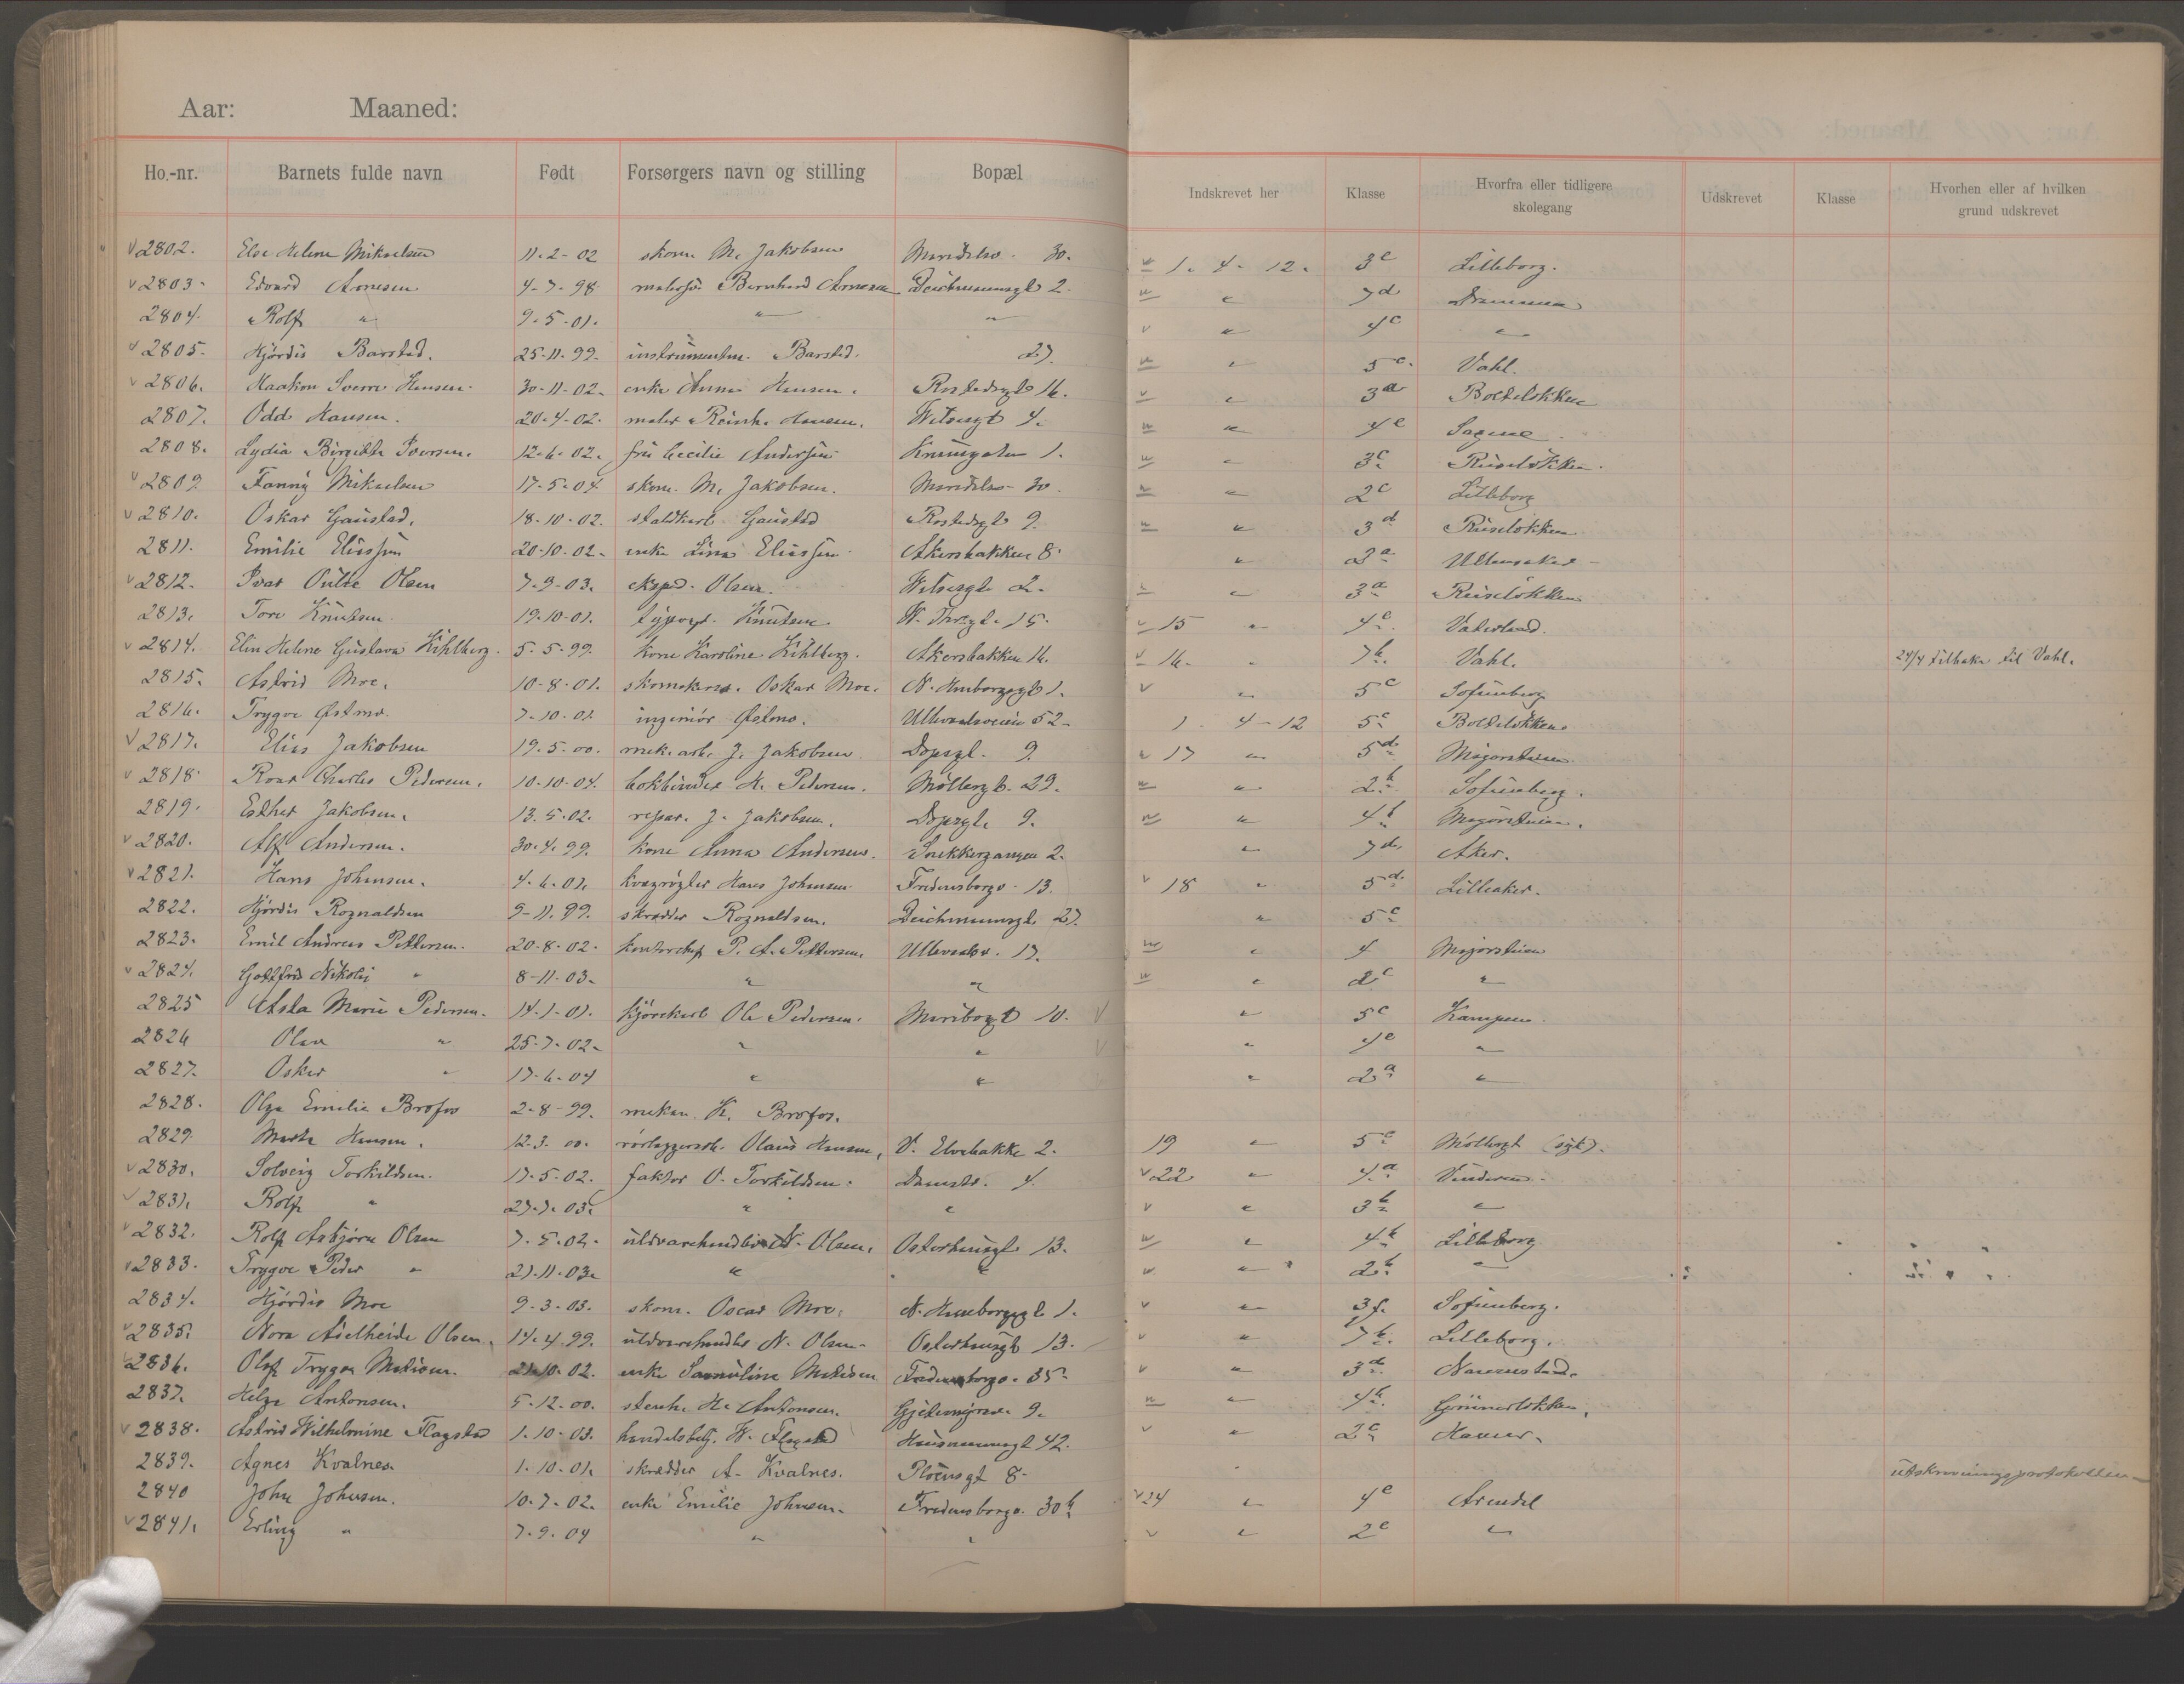 Aar: Maaned:
Ho.-nr. Barnets fulde navn Født Forsørgers navn og stilling Bopæl Indskrevet her Klasse Hvorfra eller tidligere skolegang Udskrevet Klasse Hvorhen eller af hvilken grund udskrevet
2802. Else Helene Mikaelsen 11-2-02 skom. M. Jakobsen 30. 1. 4. 12. 3c Lilleborg.
2803. Edvard Arnesen 4-7-98 Bernhard Arnesen Deichmannsgt 2. " 7d Drammen
2804. Rolf " 9-5-01. " " " 4c "
2805. Hjørdis Barstad. 25-11-99. instrumentm. Barstad. 27. " 5c. Vahl.
2806. Haakon Sverre Hansen. 30-11-02. enke Anna Hansen. Rostedsgt 16. " 3a Bolteløkken
2807. Odd Hansen. 20-4-02. maler Reinh. Hansen. Wilsesgt 4. " 4e Sagene
2808. Lydia Birgitte Iversen. 12-6-02. frü Cecilie Andersen 1. " 3c Ruseløkken.
2809 Fanny Mikaelsen 17-5-04. skom. M. Jakobsen. 30. " 2c Lilleborg
2810. Oskar Gaustad. 18-10-02. staldkarl Gaustad Rostedsgt 9. " 3d Ruseløkken
2811. Emilie Eliassen 20-10-02. enke Lina Eliassen Akersbakken 8. " 3a Ullensaker
2812. Ivar Olsen 7-9-03. eksped. Olsen. Wilsesgt. 2. " 3a Ruseløkken
2813. Tore Knutsen. 19-10-01. typogr. Knutsen 15. 15 " 4e. Vaterland.
2814. Elin Helene Gustava Kihlberg. 5-5-99. kone Karoline Kihlberg. Akersbakken 16. 16. " 7b. Vahl. 24/4 tilbake til Vahl.
2815. Astrid Moe. 10-8-01. skomaker Oskar Moe. 1. " 5c Sofienberg
2816. Trygve Østmo. 7-10-01. ingeniør Østmo. Ullevaalsveien 52. 1. 4-12 5c Bolteløkken.
2817. Elias Jakobsen 19-5-00. mek. arb. J. Jakobsen. Dopsgt. 9. 17 " 5d Majorstuen.
2818. Roar Charles Pedersen. 10-10-04. bokbinder H. Pedersen. Møllergt. 29. " 2b Sofienberg.
2819. Esther Jakobsen. 13-5-02. repar. J. Jakobsen. Dopsgt. 9. " 4b Majorstuen.
2820. Alf Andersen. 30-4-99. kone Anna Andersen. Snekkergangen 2. " 7d. Aker.
2821. Hans Johnsen. 4-6-01. kvægrøgter Hans Johnsen Fredensborgv. 13. 18 " 5d Lilleaker.
2822. Hjørdis Rognaldsen 9-11-99. skrædder Rognaldsen. Deichmannsgt. 27. " 5c
2823. Emil Andreas Pettersen. 20-8-02. kontorchef P. A. Pettersen. Ullevaalsv. 17. " 4 Majorstuen
2824. Gottfrid Nikolai " 8-11-03. " " " 2c "
2825 Asta Marie Pedersen. 14-1-01. kjørekarl Ole Pedersen. Maribogt 10. " 5c Kampen.
2826 Olea " 25-7-02. " " " 4e "
2827. Oskar " 17-6-04 " " " 2a "
2828. Olga Emilie Brofos 2-8-99. mekan. K. Brofos.
2829. Marta Hansen. 12-3-00. rørlæggerarb. Olaus Hansen. V. Elvebakke 2. 19 " 5c Møllergt (syk).
2830. Solveig Torkildsen. 17-5-02. faktor O. Torkildsen. Damstr. 4. 22 " 4a Vinderen.
2831. Rolf " 27-7-03. " " " 3b "
2832. Rolf Asbjørn Olsen 7-5-02. uldvarehandler N. Olsen. Osterhausgt 13. " 4b Lilleborg
2833. Trygve Peder " 21-11-03. " " " 2b. "
2834. Hjørdis Moe 9-3-03. skom. Oscar Moe. 1. " 3f. Sofienberg.
2835. Nora Adelheide Olsen. 14-4-99. uldvarehandler N. Olsen. Osterhausgt 13. " 7b. Lilleborg.
2836. Olaf Trygve 21-10-02. enke Fredensborgv. 35. " 3d.
2837. Helge Antonsen. 5-12-00. stenh. H. Antonsen. 9. " 4b. Grünerløkken.
2838. Astrid Wilhelmine Flagstad 1-10-03. handelsbetj. W. Flagstad Hausmannsgt 42. " 2c Hamar.
2839. Agnes Kvalnes. 1-10-01. skrædder A. Kvalnes. Pløensgt 8. utskrivningsprotokollen
2840 John Johnsen. 10-7-02. enke Emilie Johnsen. Fredensborgv. 30b 24 " 4e Arendal
2841. Erling " 7-9-04 " " " 2e "